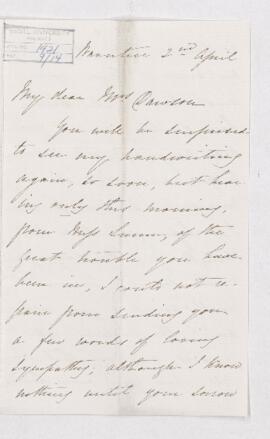 McGILL UNIVERSITY
ARCHIVES
ACC. NO. 1421
REF. 9/14
2nd April
My dear Mrs Dawson
You will be surprised
to see my handwriting
again, so soon, but hear
ing only this morning,
from Miss of the
great trouble you have
been in, I could not re-
frain from sending you
a few words of loving
sympathy, although I know
nothing until your sorrow